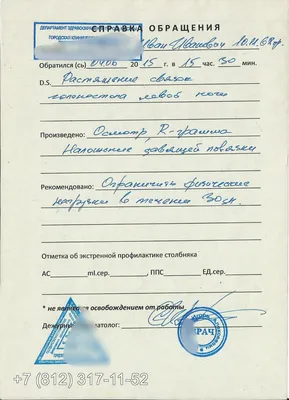 СПРАВКА ОБРАЩЕНИЯ
ДЕПАРТАМЕНТ ЗДРАВООХРАНЕНИЯ
ГОРОДСКАЯ КЛИНИЧЕСКАЯ
Иван Иванович 10.11.68г.
Обратился (сь) 04.06 2015 г. в 15 час. 30 мин.
D.S. Растяжение связок
голеностопа левой ноги
Произведено: Осмотр R-грамма
Наложение давящей повязки
Рекомендовано: Ограничить физические
нагрузки в течении 30 дн.
Отметка об экстренной профилактике столбняка
АС ml.сер. , ППС ЕД.сер.
* не является освобождением от работы
Дежурный
ВРАЧ
+7 (812) 317-11-52